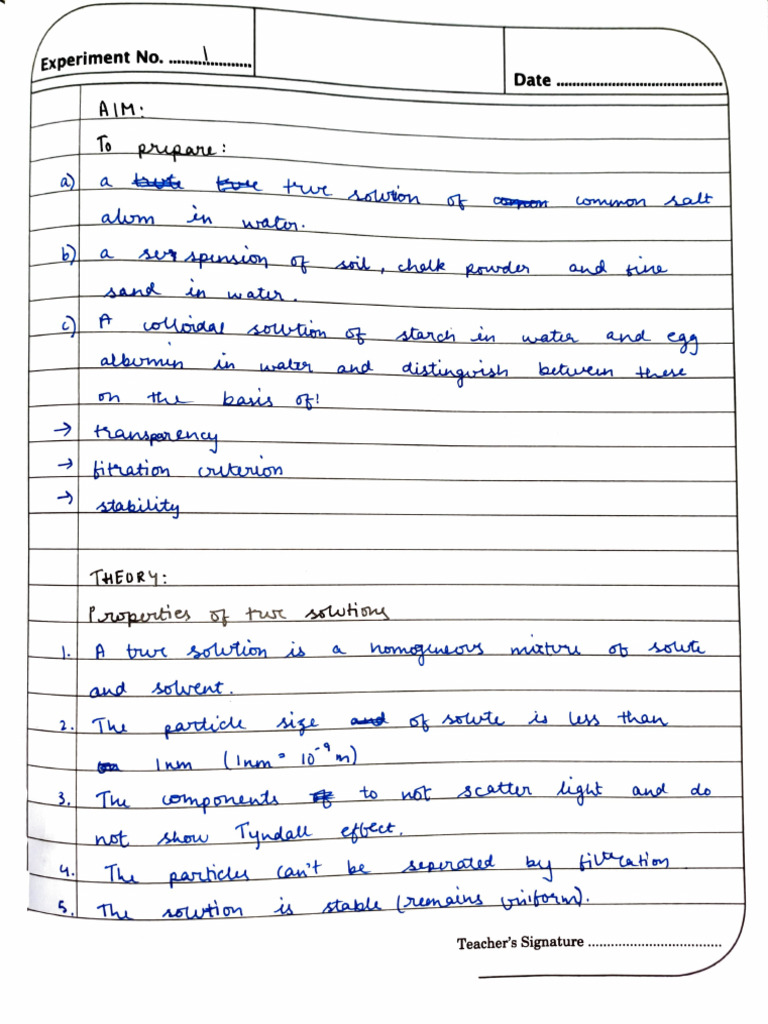 Experiment No. ........1..........
Date ..........................................
AIM:
To prepare:
a) a true solution of common salt
alum in water.
b) a suspension of soil, chalk powder and fine
sand in water.
c) A colloidal solution of starch in water and egg
albumin in water and distinguish between these
on the basis of:
→ transparency
→ filtration criterion
→ stability
THEORY:
Properties of true solutions
1. A true solution is a homogeneous mixture of solute
and solvent.
2. The particle size of solute is less than
1nm (1nm = 10⁻⁹ m)
3. The components to not scatter light and do
not show Tyndall effect.
4. The particles can't be seperated by filteration
5. The solution is stable (remains uniform).
Teacher's Signature ..................................